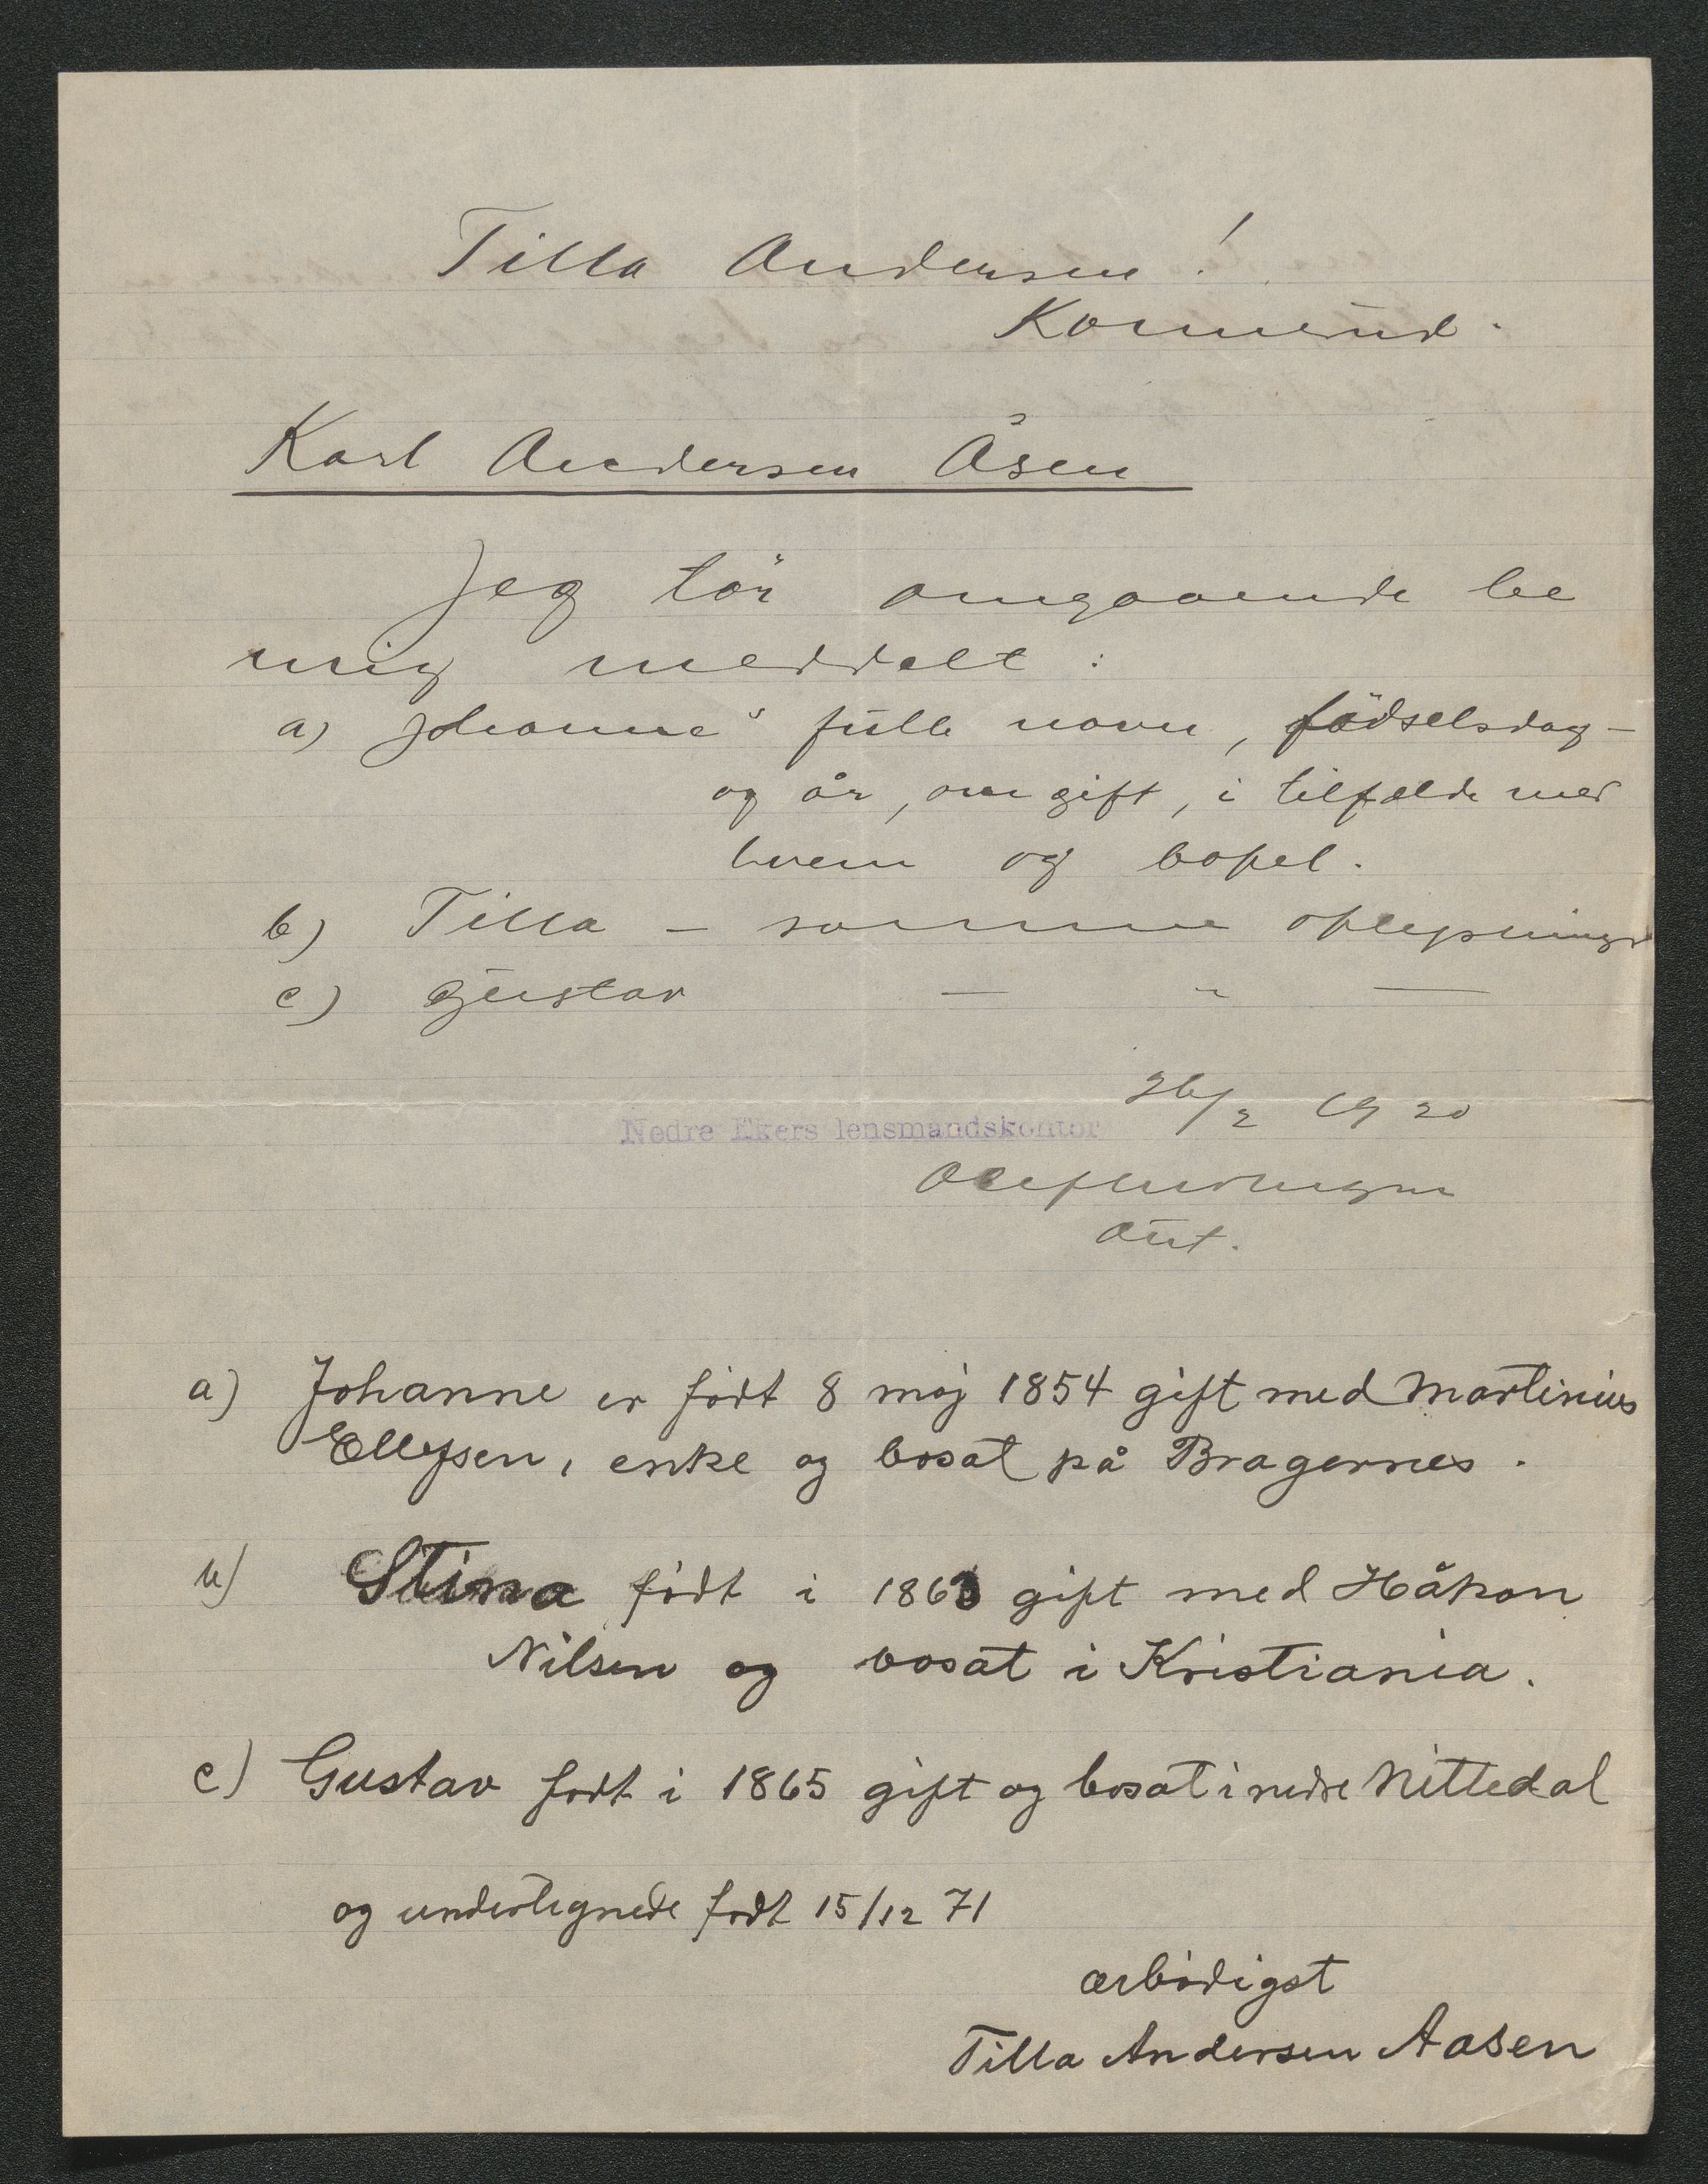 Tilla Andersen!
Kormerud.
Karl Andersen Åsen
Jeg tör omgaaende be
mig meddelt:
a) Johanne's fulle navn, födselsdag-
og år, om gift, i tilfælde med
hvem og bopel.
b) Tilla - samme oplysninger
c) Gustav — " —
26/2 1920
Nedre Ekers lensmandskontor
aut.
a) Johanne er født 8 maj 1854 gift med Martinius
Ellefsen, enke og bosat på Bragernes.
b) Stina født i 1863 gift med Håkon
Nilsen og bosat i Kristiania.
c) Gustav født i 1865 gift og bosat i nedre Nittedal
og undertegnede født 15/12 71
ærbødigst
Tilla Andersen Aasen